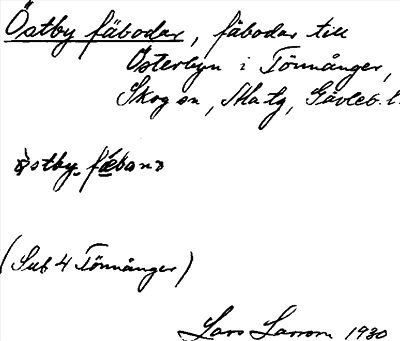 Östby fäbodar, fäbodar till
Österbyn i Tönnånger,
Skog sn, Matg, Gävleb. l.
(Sub 4 Tönnånger)
Lars Larsson 1930